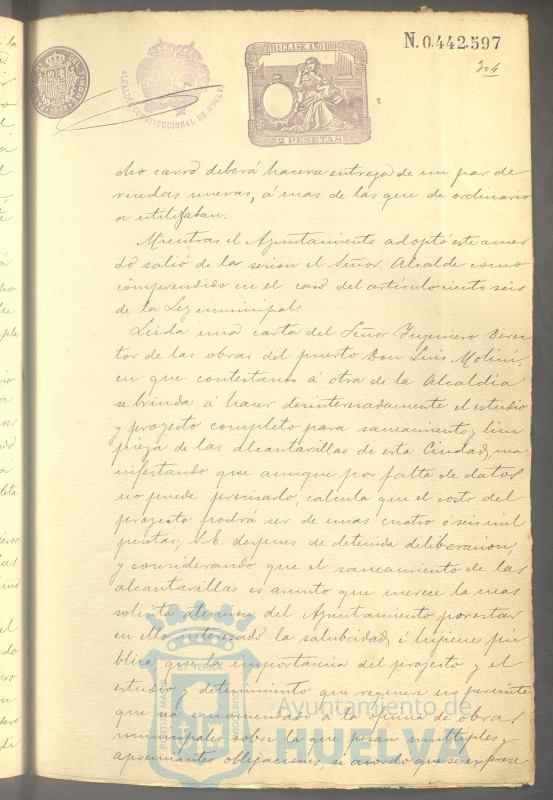 N.0.442.597
304
11ª CLASE. AÑO 189
2 PESETAS
ALCALDIA CONSTITUCIONAL DE HUELVA
DEL TIMBRE
cho carro deberá hacerse entrega de un par de
ruedas nuevas, á mas de las que de ordinario
se utilizaban.
Mientras el Ayuntamiento adoptó este acuer
do salió de la sesion el Señor Alcalde como
comprendido en el caso del artículo ciento seis
de la Ley municipal.
Leida una carta del Señor Yngeniero Direc
tor de las obras del puerto Don Luis Molini,
en que contestando á otra de la Alcaldía
se brinda á hacer desinteresadamente el estudio
y proyecto completo para saneamiento y lim
pieza de las alcantarillas de esta Ciudad, ma
nifestando que aunque por falta de datos
no puede precisarlo, calcula que el costo del
proyecto podrá ser de unas cuatro ó seis mil
pesetas; S.E. despues de detenida deliberacion,
y considerando que el saneamiento de las
alcantarillas es asunto que merece la mas
solicita atencion del Ayuntamiento por estar
en ello interesada la salubridad é higiene pú
blica, que la importancia del proyecto y el
estudio y detenimiento que requiere no permite
que sea encomendado á la oficina de obras
municipales sobre la que pesan multiples y
apremiantes obligaciones, se acordó que se exprese
PORTUS MARIS
ET TERRE
CUSTODIA
Ayuntamiento de
HUELVA